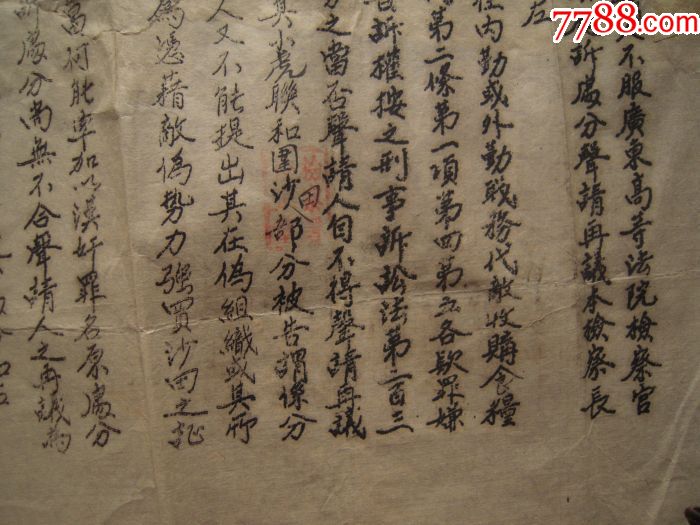 7788.com
不服廣東高等法院檢察官
訴處分聲請再議本檢察長
左
內勤或外勤職務代敵收購食糧
第二條第一項第四第五各款罪嫌
告訴權按之刑事訴訟法第二百三
分之當否聲請人自不得聲請再議
其小虎聯和圍沙田部分被告謂係分
人又不能提出其在偽組織或其所
為憑藉敵偽勢力強買沙田之証
當何能率加以漢奸罪名原處分
訴處分尚無不合聲請人之再議為